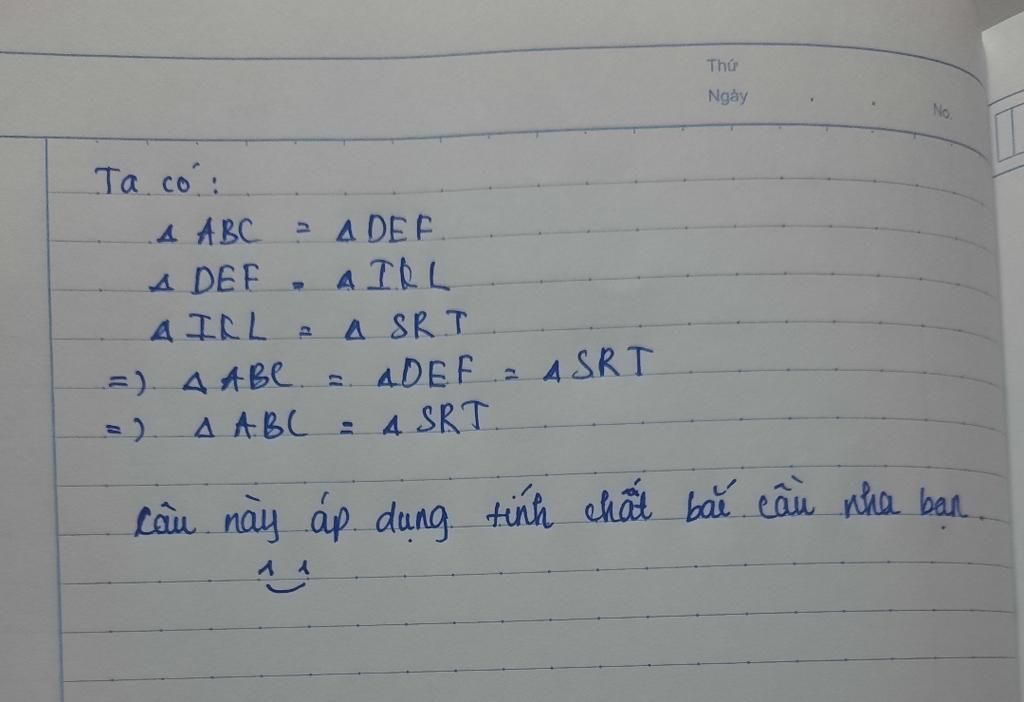 Thứ
Ngày . .
No.
Ta có:
Δ ABC = Δ DEF
Δ DEF = Δ IKL
Δ IKL = Δ SRT
=) Δ ABC = Δ DEF = Δ SRT
=) Δ ABC = Δ SRT
câu này áp dụng tính chất bắc cầu nha bạn